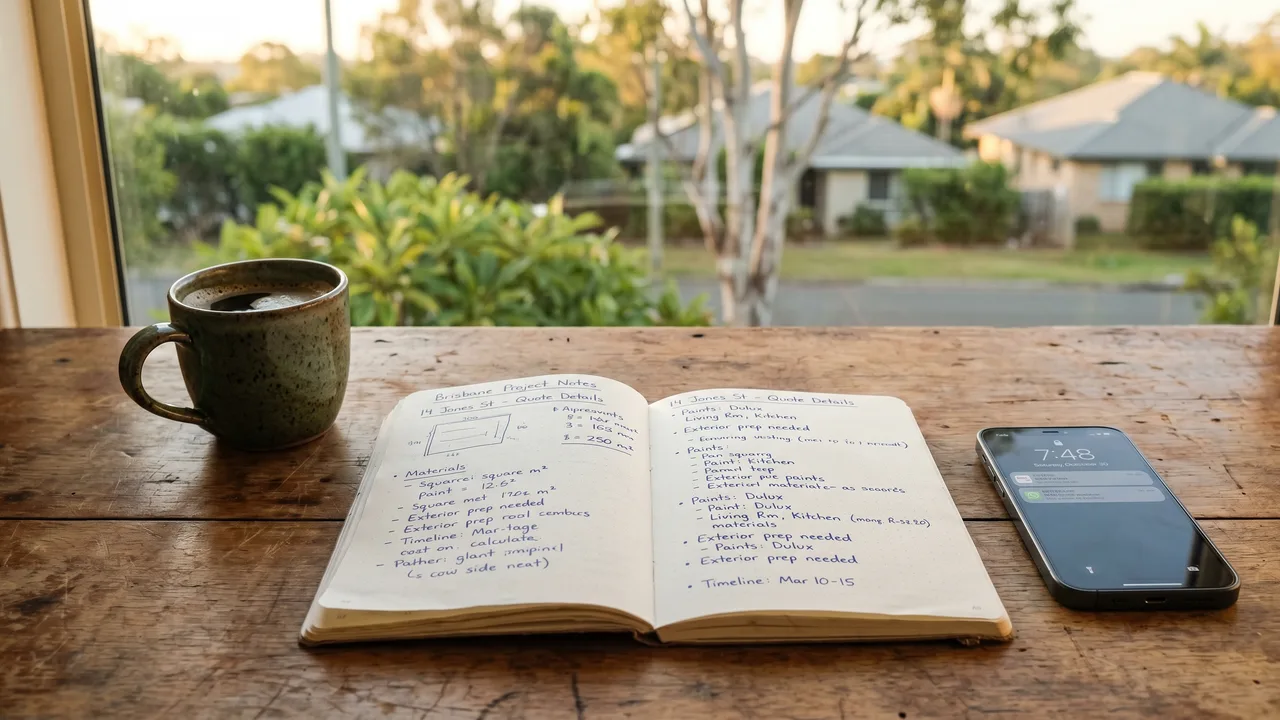 Brisbane Project Notes
14 Jones St - Quote Details
= 250 m²
• Materials
- square m²
Paint = 12.62
- Square met 170z m²
- Exterior prep needed
- Exterior prep
- Timeline: Mar-tage
cost on: calculate
- Pather: glant
(s cow side neat)
14 Jones St - Quote Details
• Paints: Dulux
• Living Rm, Kitchen
• Exterior prep needed
• Paints:
- Pan squarry
- Paint: Kitchen
- Exterior pve paints
- Exterior materials- as
• Paints: Dulux
- Paint: Dulux
- Living Rm, Kitchen
materials
• Exterior prep needed
- Paints: Dulux
• Exterior prep needed
• Timeline: Mar 10-15
7:48